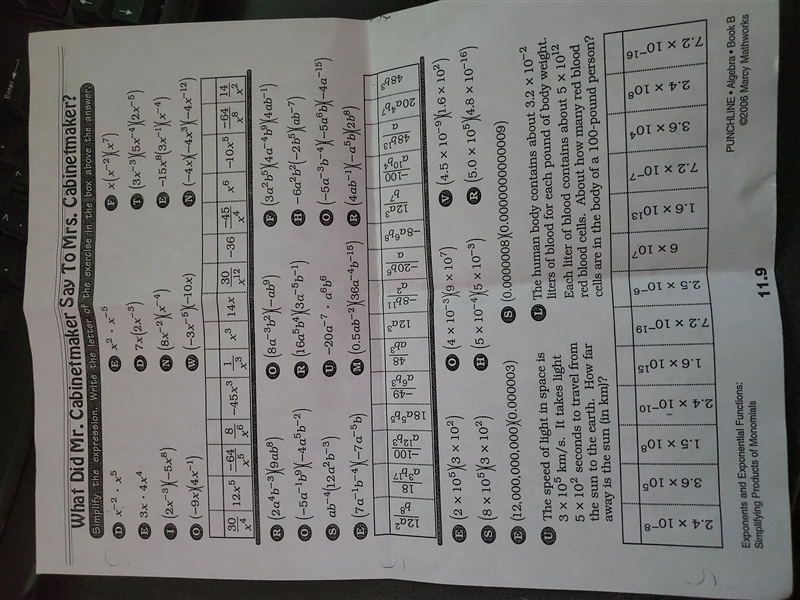 What Did Mr. Cabinetmaker Say To Mrs. Cabinetmaker?
Simplify the expression. Write the letter of the exercise in the box above the answer.
D x⁻² · x⁵
E x² · x⁻⁵
F x(x⁻²)(x⁷)
E 3x · 4x⁴
D 7x(2x⁻³)
T (3x⁻³)(5x⁻⁴)(2x⁻⁵)
I (2x⁻³)(−5x⁸)
N (8x⁻²)(x⁻⁴)
E −15x⁸(3x⁻¹)(x⁻⁴)
O (−9x)(4x⁻¹)
W (−3x⁻⁵)(−10x)
N (−4x)(−4x³)(−4x⁻¹²)
30/x⁴ 12x⁵ −64/x⁵ 8/x⁶ −45x³ 1/x³ x³ 14x 30/x¹² −36 −45/x⁴ x⁶ −10x⁵ −64/x⁸ 14/x²
R (2a⁴b⁻³)(9ab⁸)
O (8a⁻³b²)(−ab⁹)
F (3a²b⁵)(4a⁻⁴b⁹)(4ab⁻¹)
O (−5a⁻¹b⁹)(−4a⁵b⁻²)
R (16a⁵b⁴)(3a⁻⁵b⁻¹)
H −6a²b²(−2b⁵)(ab⁻⁷)
S ab⁻⁴(12a²b⁻³)
U −20a⁻⁷ · a⁶b⁶
O (−5a⁻³b⁻⁴)(−5a⁶b)(−4a⁻¹⁵)
E (7a⁻¹b⁻⁴)(−7a⁻⁵b)
M (0.5ab⁻²)(36a⁻⁴b⁻¹⁵)
R (4ab⁻¹)(−a⁵b)(2b⁸)
12a³/b⁸ 18/a³b¹⁷ −100/a¹²b³ 18a⁵b⁵ −49/a⁶b³ 48/ab³ 12a³ −8b¹¹/a² −20b⁶/a −8a⁶b⁸ 12a³/b⁷ −100/a¹⁰b⁴ 48b¹³/a 20a⁴b⁷ 48b³
E (2 × 10⁵)(3 × 10²)
O (4 × 10⁻³)(9 × 10⁷)
V (4.5 × 10⁻⁹)(1.6 × 10²)
S (8 × 10⁵)(3 × 10²)
H (5 × 10⁻⁴)(5 × 10⁻³)
R (5.0 × 10⁵)(4.8 × 10⁻¹⁶)
E (12,000,000,000)(0.000003)
S (0.00000008)(0.000000000000009)
U The speed of light in space is
3 × 10⁵ km/s. It takes light
5 × 10² seconds to travel from
the sun to the earth. How far
away is the sun (in km)?
L The human body contains about 3.2 × 10⁻²
liters of blood for each pound of body weight.
Each liter of blood contains about 5 × 10¹²
red blood cells. About how many red blood
cells are in the body of a 100-pound person?
2.4 × 10⁻⁸ 3.6 × 10⁵ 1.5 × 10⁸ 2.4 × 10⁻¹⁰ 1.6 × 10¹⁵ 7.2 × 10⁻¹⁹ 2.5 × 10⁻⁶ 6 × 10⁷ 1.6 × 10¹³ 7.2 × 10⁻⁷ 3.6 × 10⁴ 2.4 × 10⁸ 7.2 × 10⁻¹⁶
Exponents and Exponential Functions:
Simplifying Products of Monomials
11.9
PUNCHLINE • Algebra • Book B
©2006 Marcy Mathworks
Enter